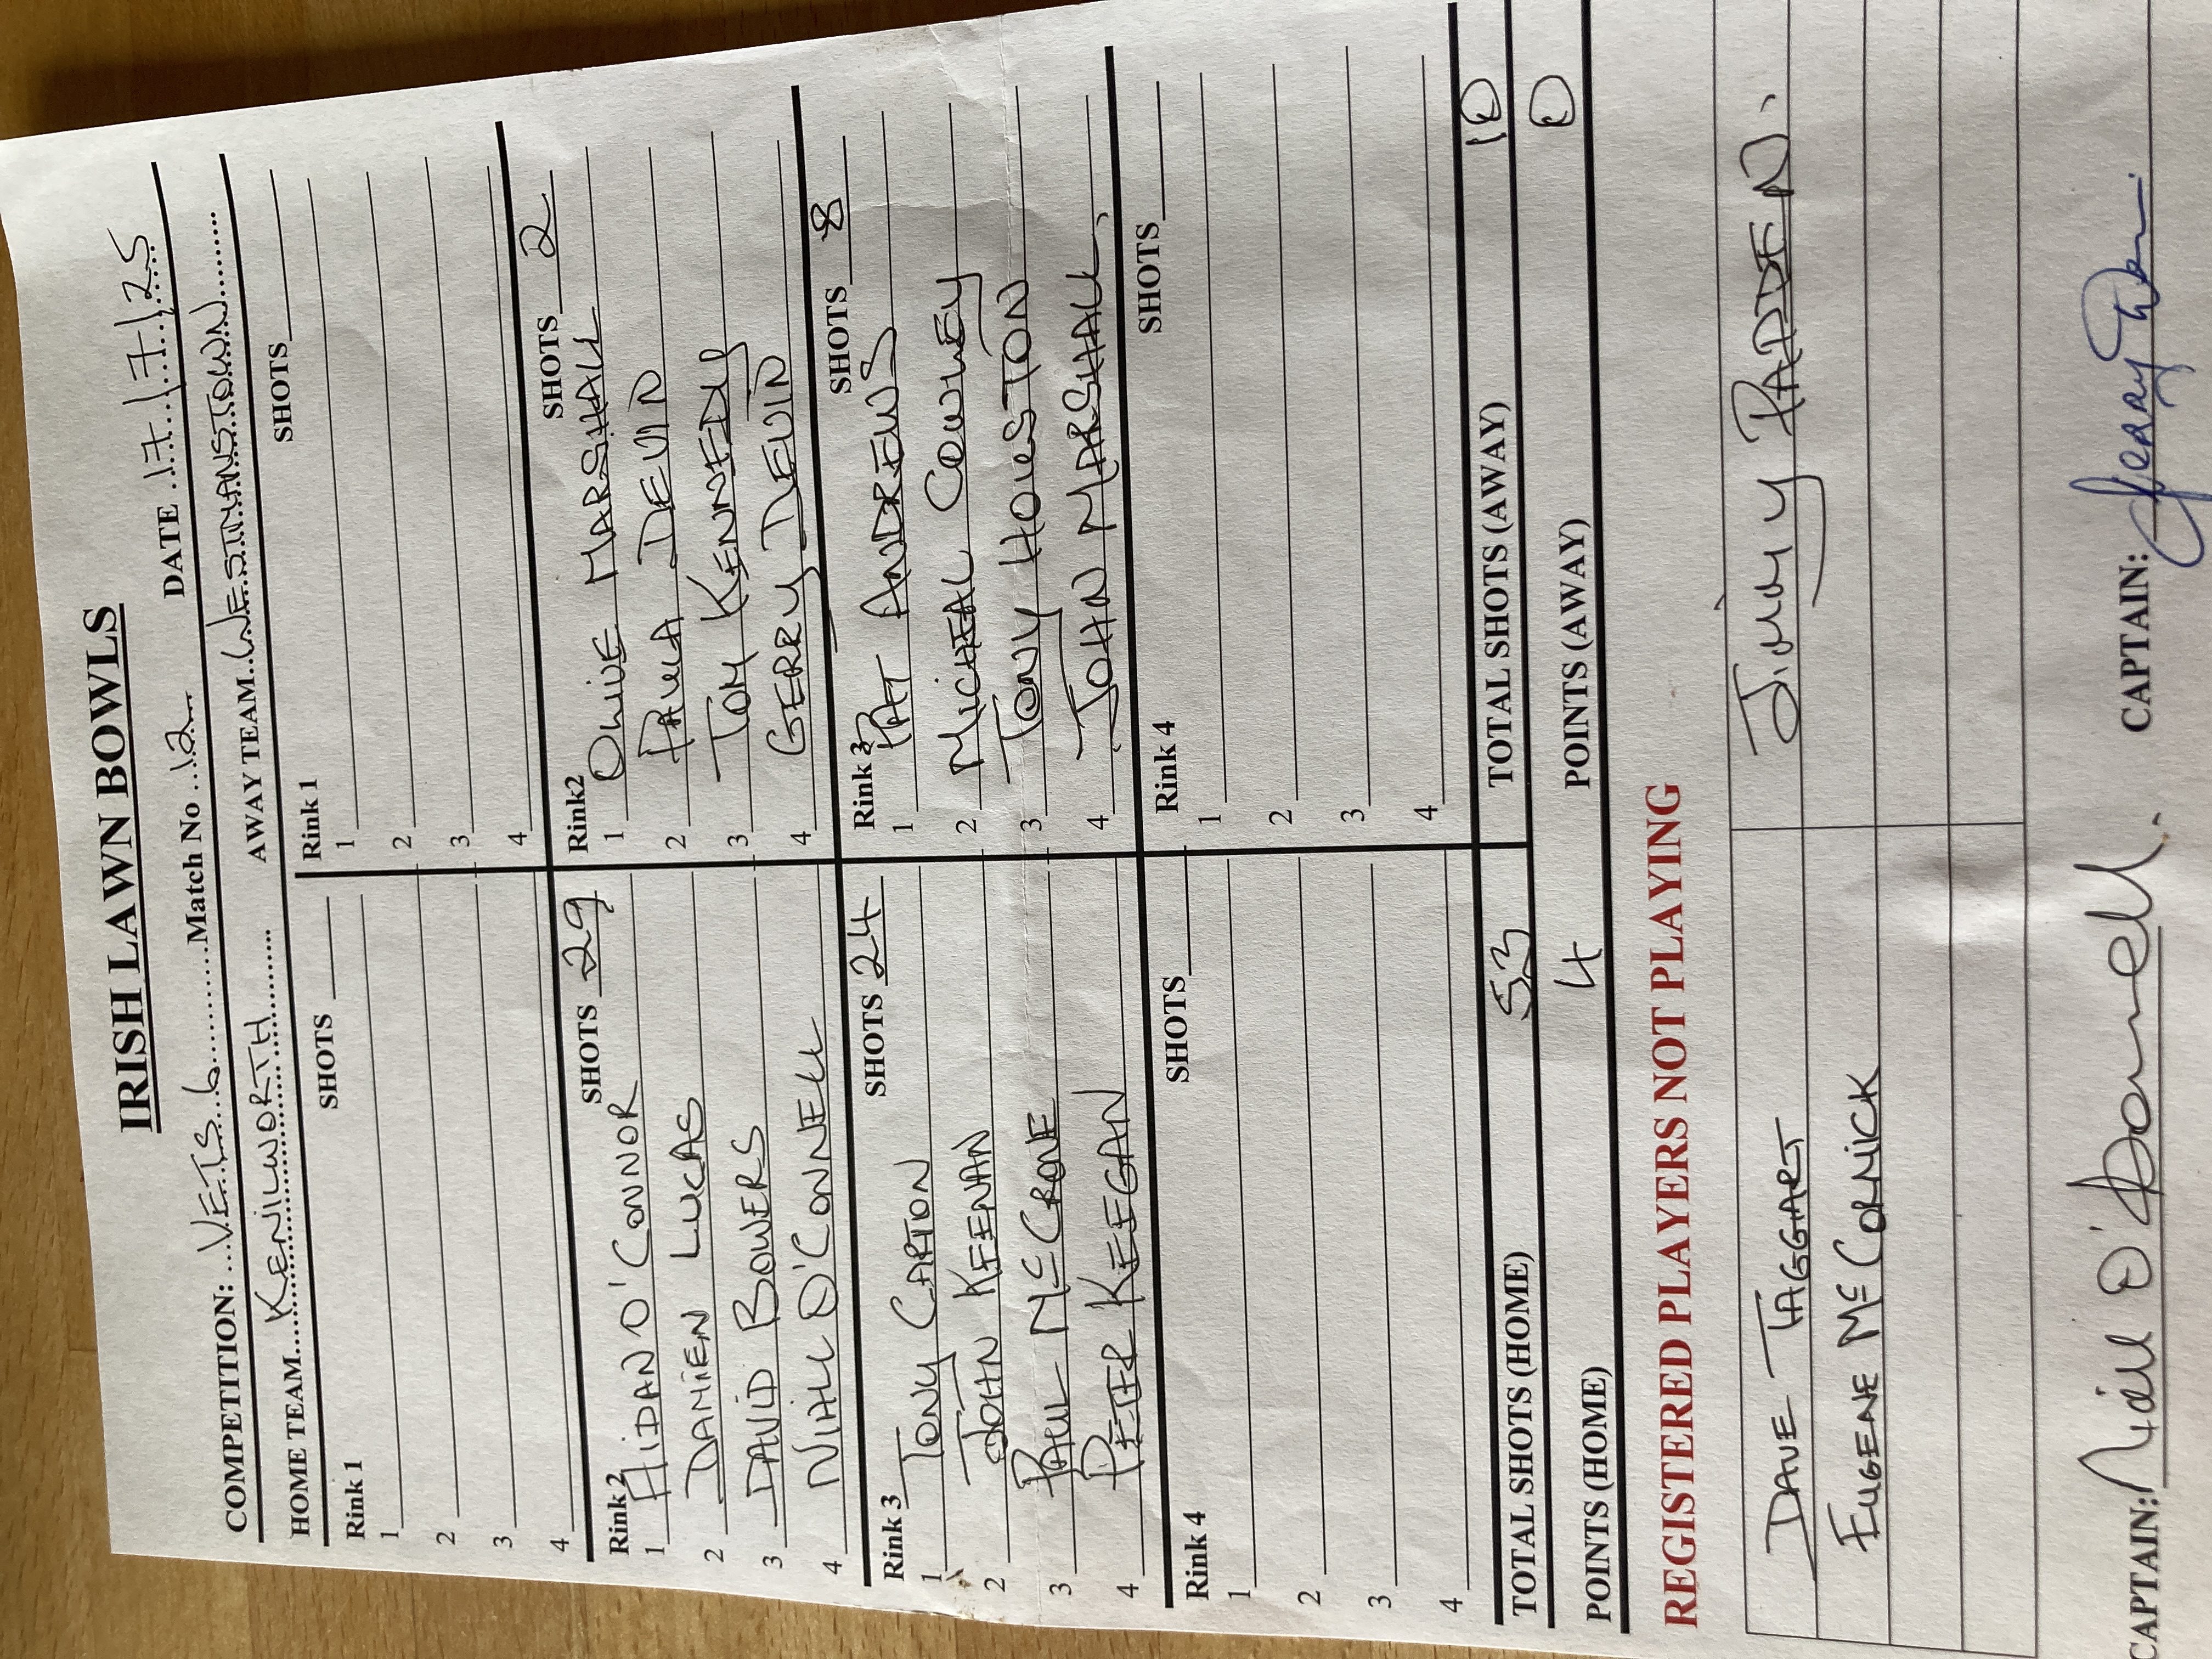 IRISH LAWN BOWLS
COMPETITION: ...VETS 6..........Match No ..12.... DATE .17./.7./.25
HOME TEAM...KENILWORTH........... AWAY TEAM..WESTMANSTOWN........
Rink 1 SHOTS
1
2
3
4
Rink 1 SHOTS
1
2
3
4
Rink 2 SHOTS 29
1 AIDAN O'CONNOR
2 DAMIEN LUCAS
3 DAVID BOWERS
4 NIALL O'CONNELL
Rink2 SHOTS 2
1 OLIVE MARSHALL
2 PAULA DEVIN
3 TOM KENNEDY
4 GERRY DEVIN
Rink 3 SHOTS 24
1 TONY CARTON
2 JOHN KEENAN
3 PAUL McCRONE
4 PETER KEEGAN
Rink 3 SHOTS 8
1 PAT ANDREWS
2 MICHEAL COWLEY
3 TONY HOUSTON
4 JOHN MARSHALL
Rink 4 SHOTS
1
2
3
4
Rink 4 SHOTS
1
2
3
4
TOTAL SHOTS (HOME) 53 TOTAL SHOTS (AWAY) 10
POINTS (HOME) 4 POINTS (AWAY) 0
REGISTERED PLAYERS NOT PLAYING
DAVE TAGGART Jimmy PADDEN.
EUGENE McCORMICK
CAPTAIN: Niall O'Donnell. CAPTAIN: Gerry